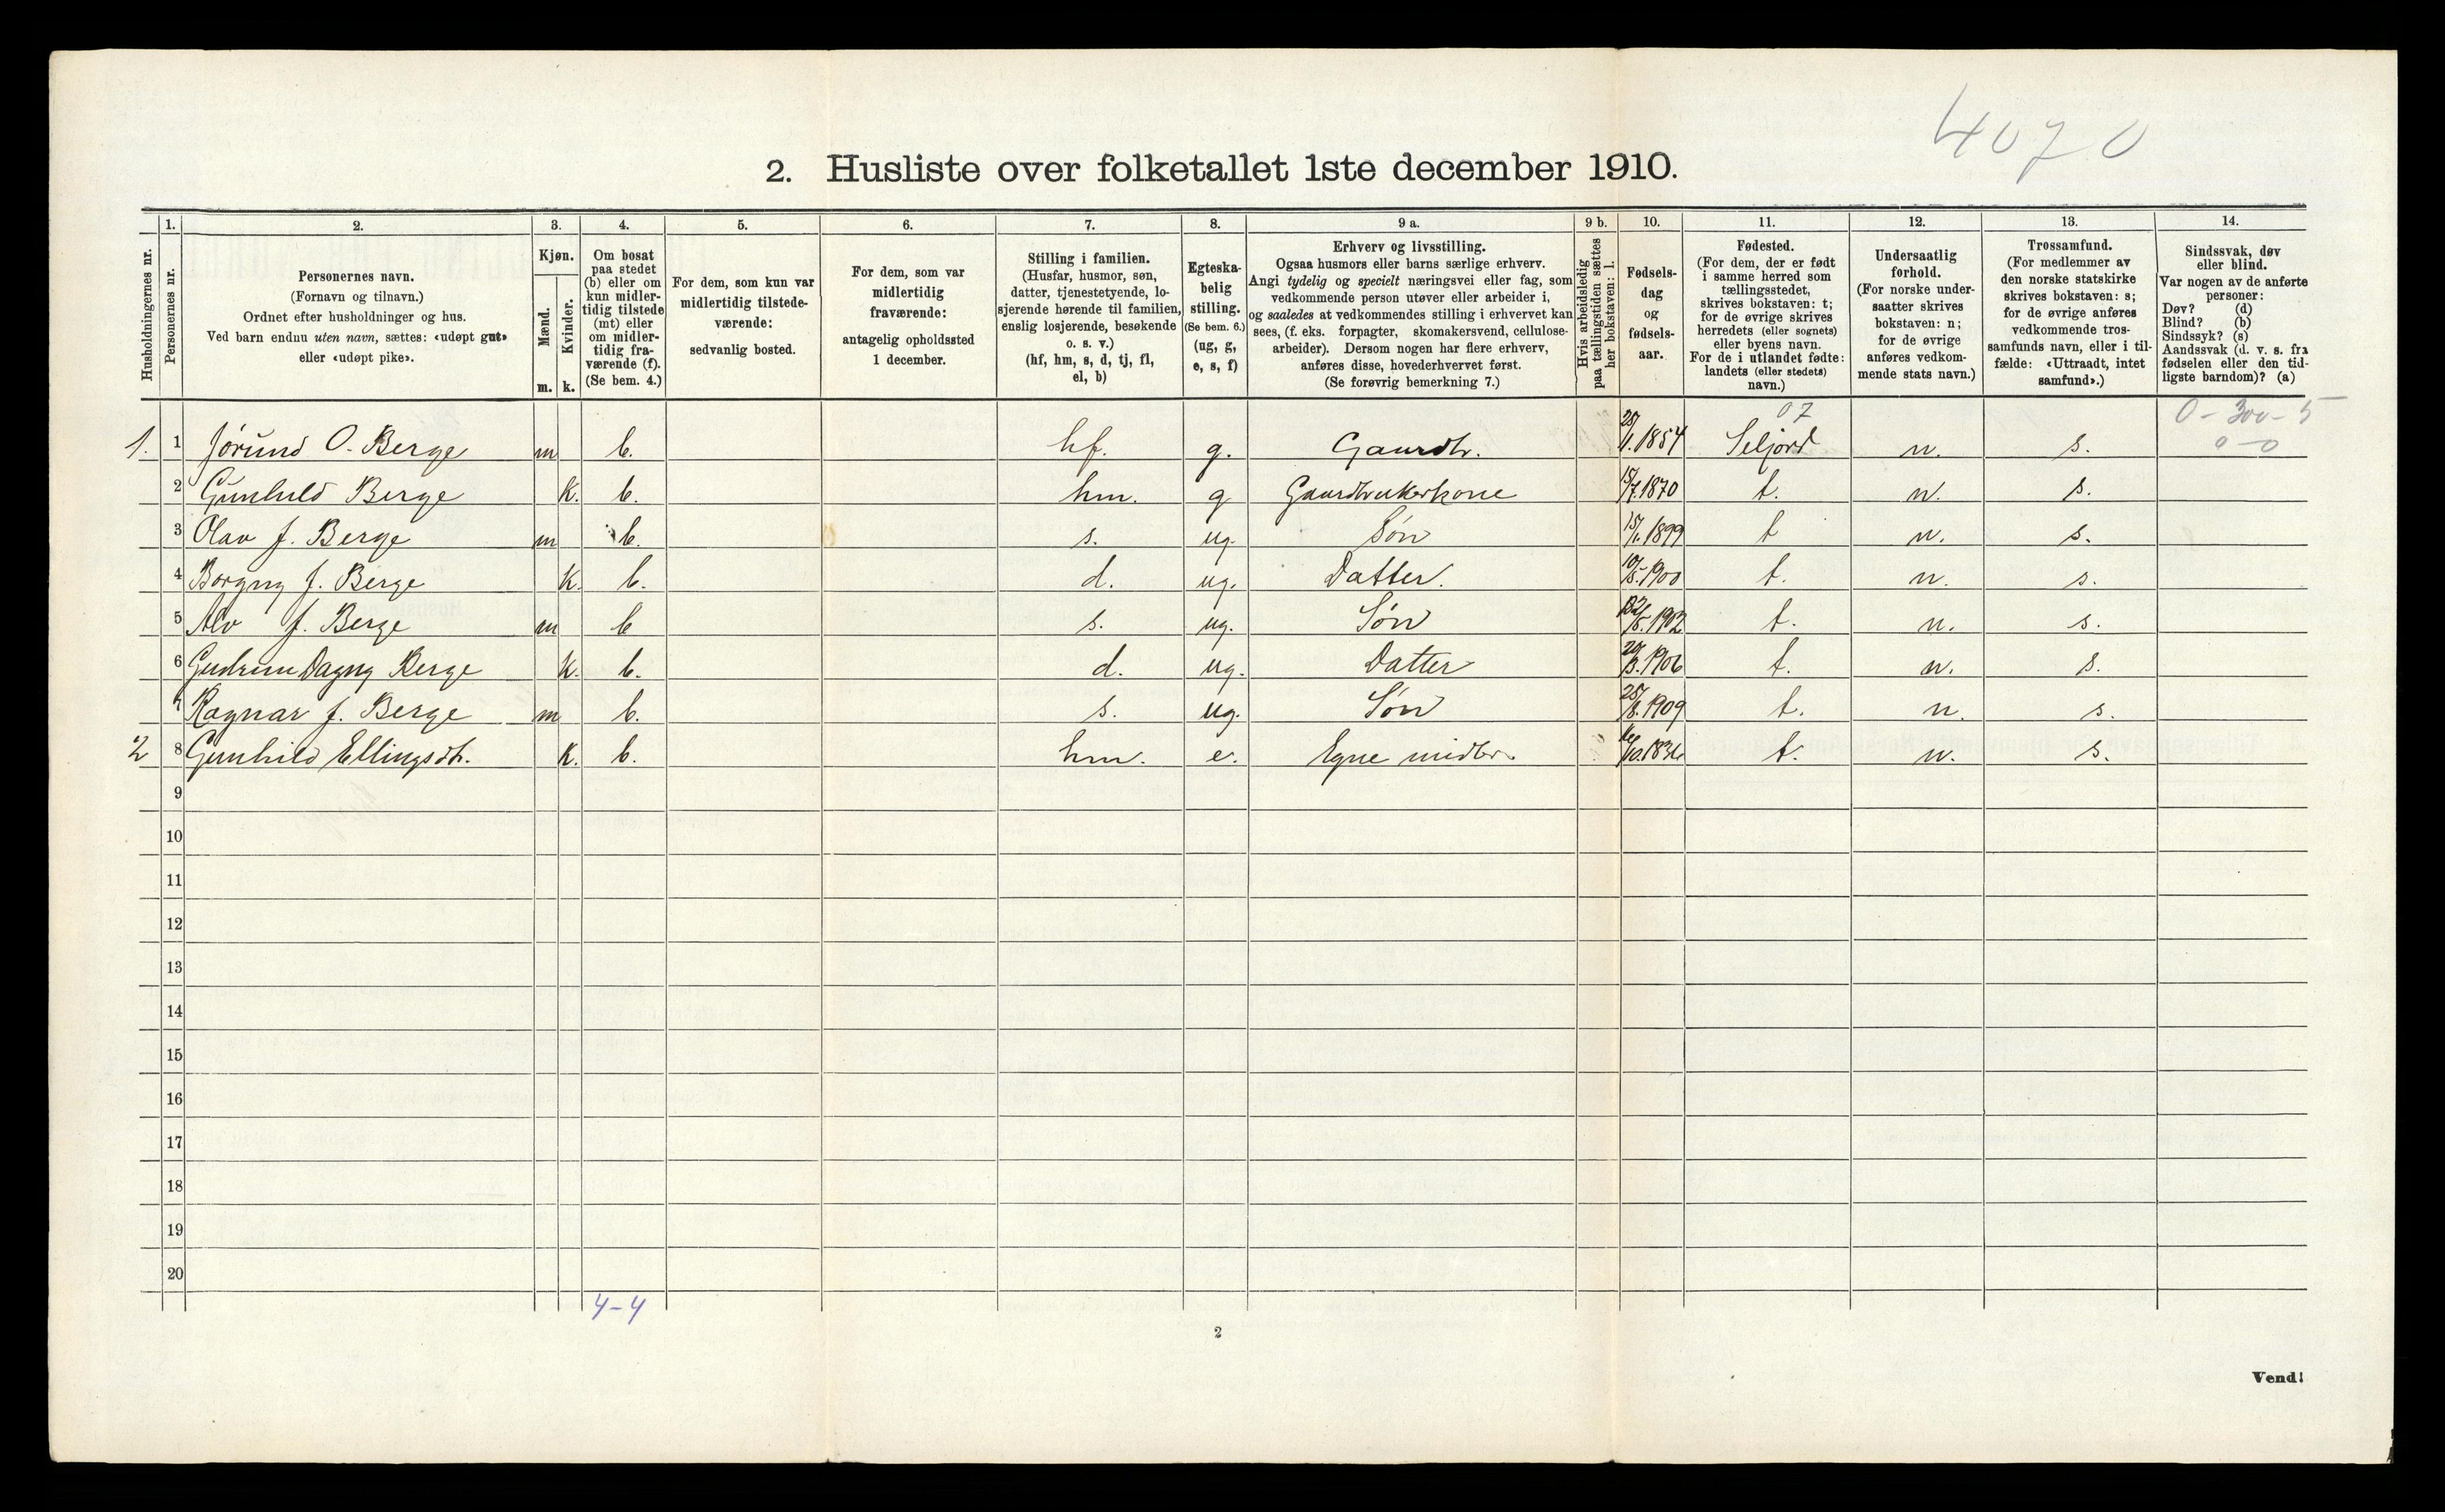 4070
2. Husliste over folketallet 1ste december 1910.
Husholdningernes nr.
1. Personernes nr.
2. Personernes navn. (Fornavn og tilnavn.) Ordnet efter husholdninger og hus. Ved barn endnu uten navn, sættes: «udøpt gut» eller «udøpt pike».
3. Kjøn. Mænd. m. Kvinder. k.
4. Om bosat paa stedet (b) eller om kun midlertidig tilstede (mt) eller om midlertidig fraværende (f). (Se bem. 4.)
5. For dem, som kun var midlertidig tilstedeværende: sedvanlig bosted.
6. For dem, som var midlertidig fraværende: antagelig opholdssted 1 december.
7. Stilling i familien. (Husfar, husmor, søn, datter, tjenestetyende, losjerende hørende til familien, enslig losjerende, besøkende o. s. v.) (hf, hm, s, d, tj, fl, el, b)
8. Egteskabelig stilling. (Se bem. 6.) (ug, g, e, s, f)
9 a. Erhverv og livsstilling. Ogsaa husmors eller barns særlige erhverv. Angi tydelig og specielt næringsvei eller fag, som vedkommende person utøver eller arbeider i, og saaledes at vedkommendes stilling i erhvervet kan sees, (f. eks. forpagter, skomakersvend, cellulosearbeider). Dersom nogen har flere erhverv, anføres disse, hovederhvervet først. (Se forøvrig bemerkning 7.)
9 b. Hvis arbeidsledig paa tællingstiden sættes her bokstaven: l.
10. Fødselsdag og fødselsaar.
11. Fødested. (For dem, der er født i samme herred som tællingsstedet, skrives bokstaven: t; for de øvrige skrives herredets (eller sognets) eller byens navn. For de i utlandet fødte: landets (eller stedets) navn.)
12. Undersaatlig forhold. (For norske undersaatter skrives bokstaven: n; for de øvrige anføres vedkommende stats navn.)
13. Trossamfund. (For medlemmer av den norske statskirke skrives bokstaven: s; for de øvrige anføres vedkommende trossamfunds navn, eller i tilfælde: «Uttraadt, intet samfund».)
14. Sindssvak, døv eller blind. Var nogen av de anførte personer: Døv? (d) Blind? (b) Sindssyk? (s) Aandssvak (d. v. s. fra fødselen eller den tidligste barndom)? (a)
07 0-300-5
1. 1 Jørund O. Berge m b. hf. g. Gaardbr. 1854 Seljord n. s. 0-0
2 Gunhild Berge K. b. hm. g Gaardbrukerkone 15/7.1870 t. n. s.
3 Olav J. Berge m b. s. ug. Søn 15/1.1899 t n. s.
4 Borgny J. Berge K. b. d. ug. Datter. 10/5.1900 t. n. s.
5 Alv J. Berge m b s. ug. Søn 1902 t. n. s.
6 Gudrun Dagny Berge K. b. d. ug. Datter 1906 t. n. s.
7 Ragnar J. Berge m b. s. ug. Søn 25/8.1909 t. n. s.
2 8 Gunhild Ellingsdtr. K. b. hm. e. Egne midler. t. n. s.
9
10
11
12
13
14
15
16
17
18
19
20
4-4
2
Vend!